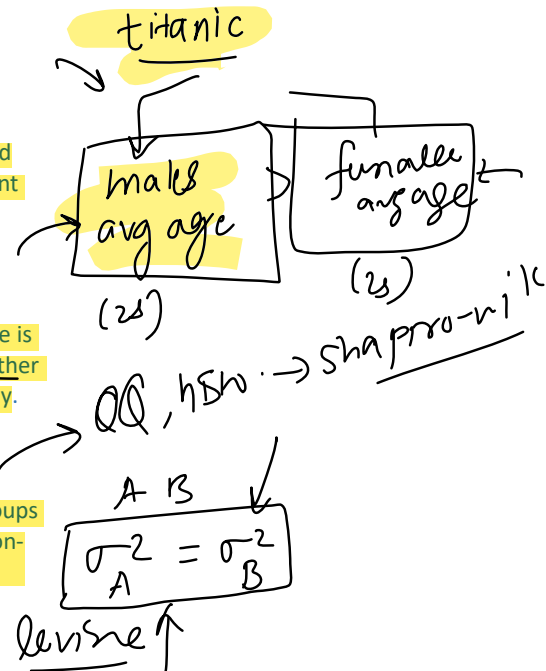 titanic
d
nt
males
avg age
>
funalee
avg age
(25)
(25)
e is
ther
y.
QQ, → shapro-wilk
A B
oups
on-
σ²A = σ²B
levisne